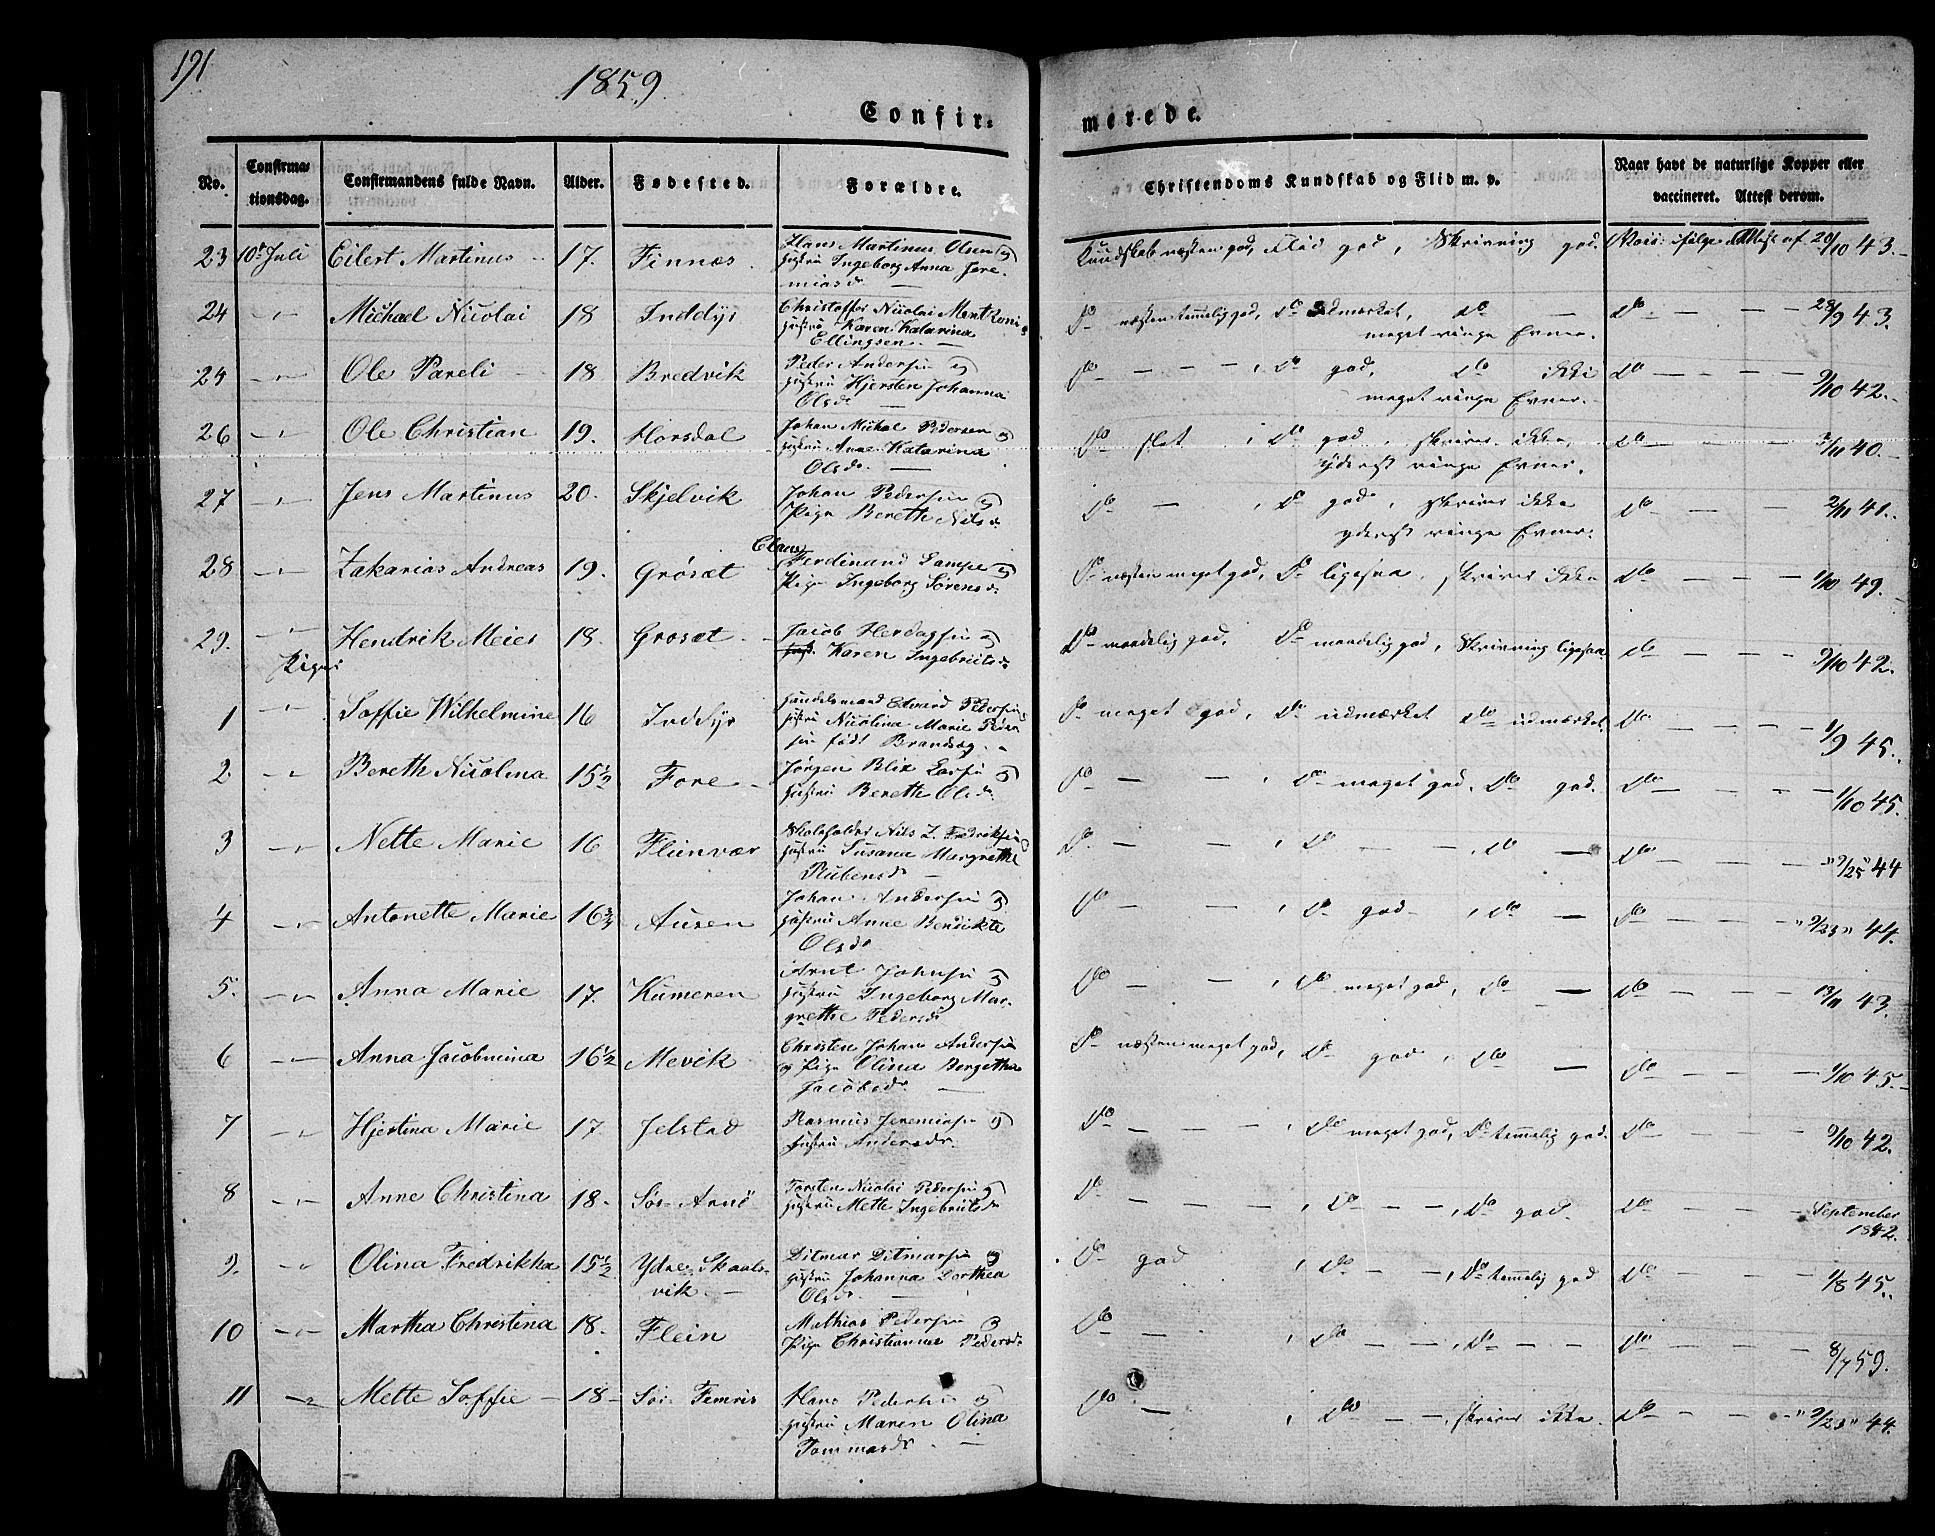 191
1859.
Confir- merede.
No. Confirmationsdag. Confirmandens fulde Navn. Alder. Fødested. Forældre. Christendoms Kundskab og Flid m. v. Naar havt de naturlige Kopper eller vaccineret. Attest derom.
23 10de Juli Eilert Martinus 17. Finnæs. Hans Martinus Olsen og Hustru Ingeborg Anna Jeremiasdr Kundskab næsten god, Flid god, Skrivning god. Attest af 20/10 43.
24 -"- Michael Nicolai 18 Inddyr Christoffer Nicolai Hustru Karen Katarina Ellingsen. Do næsten temmelig god, Do udmærket, do meget ringe Evner. do 28/9 43.
25 -"- Ole Pareli 18 Bredvik Peder Andersen og Hustru Hjersten Johanna Olsdr Do - - - Do god, do ikke meget ringe Evner. do 9/10 42.
26 -"- Ole Christian 19. Horsdal Johan Michal Pedersen og Hustru Ane Katarina Olsdr. Do slet, Do god, skriver ikke, yderst ringe Evner. do 3/11 40.
27 -"- Jens Martinus 20. Skjelvik Johan Pedersen og Pige Bereth Nilsdr Do - , Do god, skriver ikke yderst ringe Evner. do 2/11 41.
28 -"- Zakarias Andreas 19. Grøsæt Claus Ferdinand Lampe og Pige Ingeborg Sørensdr Do næsten meget god, Do ligesaa, skriver ikke do 1/10 49.
29. -"- Hendrik Meier 18. Grosæt Jacob Herdagsen og Karen Ingebritsdr Do maadelig god, Do maadelig god, Skrivning ligesaa. do 9/10 42.
Piger
1 -"- Soffie Wilhelmine 16 Inddyr Handelsmand Edvard Pedersen Hustru Nicolina Marie Pedersen født Do meget god, Do udmærket do udmærket. do 1/9 45.
2 -"- Bereth Nicolina 15½ Fore Jørgen Blix Larsen og Hustru Bereth Olsdr Do - , Do meget god, Do god. do 1/10 45.
3 -"- Nette Marie 16 Fleinvær Skoleholder Nils Z. Fredriksen Hustru Susana Margrethe Rubensdr Do - - , Do - - , do - do "9/25" 44
4 -"- Antonette Marie 16¾ Ausen Johan Andersen og Hustru Anne Bendikte Olsdr Do - - , Do god - , do - do "9/23" 44.
5. -"- Anna Marie 17. Kumeren Arnt Johnsen og Hustru Ingeborg Margrethe Pedersdr Do - - , Do meget god, do - do 13/11 43.
6 -"- Anna Jacobmina 16½ Mevik Christen Johan Andersen og Pige Olina Bergethe Jacobsdr Do næsten meget god, Do god, do - do 9/10 45.
7 -"- Hjertina Marie 17 Jelstad Rasmus Jeremiasen og Hustru Andersdr. Do - - - , Do meget god, Do temmelig god. do 9/10 42.
8 -"- Anne Christina 18. Sør Arnö Torsten Nicolai Pedersen og Hustru Mette Ingebritsdr Do - - - , Do - - , Do god. do September 1842.
9. -"- Olina Fredrikka 15½ Ydre Skaalsvik. Ditmar Ditmarsen og Hustru Johanna Dorthea Olsdr. Do god , Do - - , Do temmelig god do 1/8 45.
10 -"- Martha Christina 18. Flein Mathias Pedersen og Pige Christianna Pedersdr Do - , Do - - , Do - - do 8/7 59.
11 -"- Mette Soffie 18 Sør Femris Hans Pedersen og Hustru Maren Olina Tommasdr. Do - , Do - - , skriver ikke. do "9/23" 44.